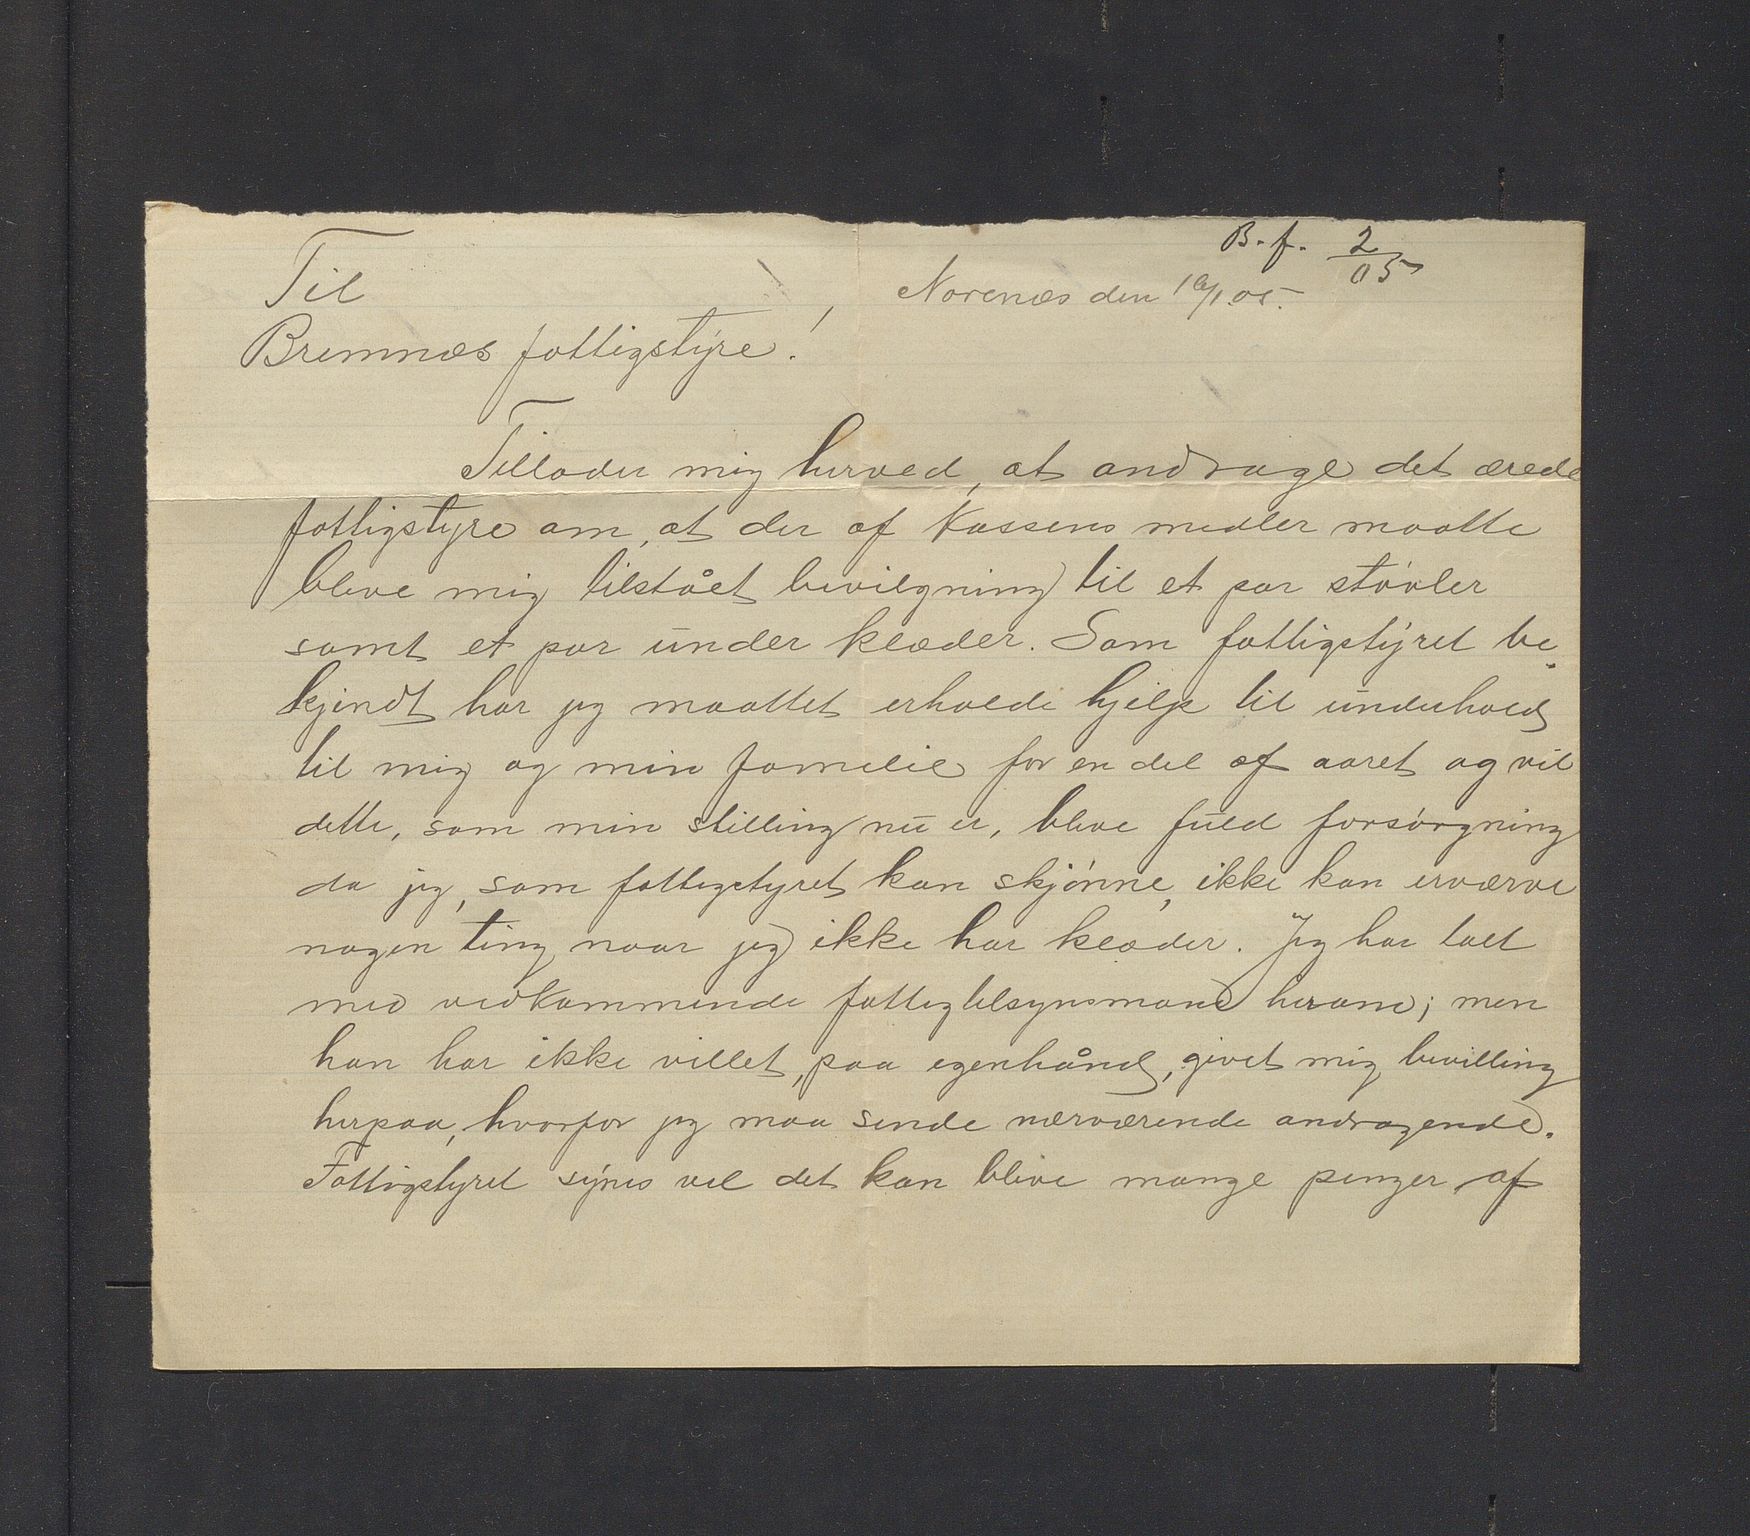 B. f. 2/05
Til
Norenæs den 16/1 05.
Bremnæs fattigstyre!
Tillader mig herved, at andrage det ærede
fattigstyre om, at der af Kassens midler maatte
blive mig tilstået bevilgning til et par støvler
samt et par under klæder. Som fattigstyret be
kjendt har jeg maattet erholde hjelp til underhold
til mig og min familie for en del af aaret og vil
dette, som min stilling nu er, blive fuld forsørgning
da jeg, som fattigstyret kan skjønne, ikke kan erværve
nogen ting naar jeg ikke har klæder. Jeg har talt
med vedkommende fattigtilsynsmand herom; men
han har ikke villet, paa egenhånd, givet mig bevilling
herpaa, hvorfor jeg maa sende nærværende andragende.
Fattigstyret synes vel det kan blive mange penger af